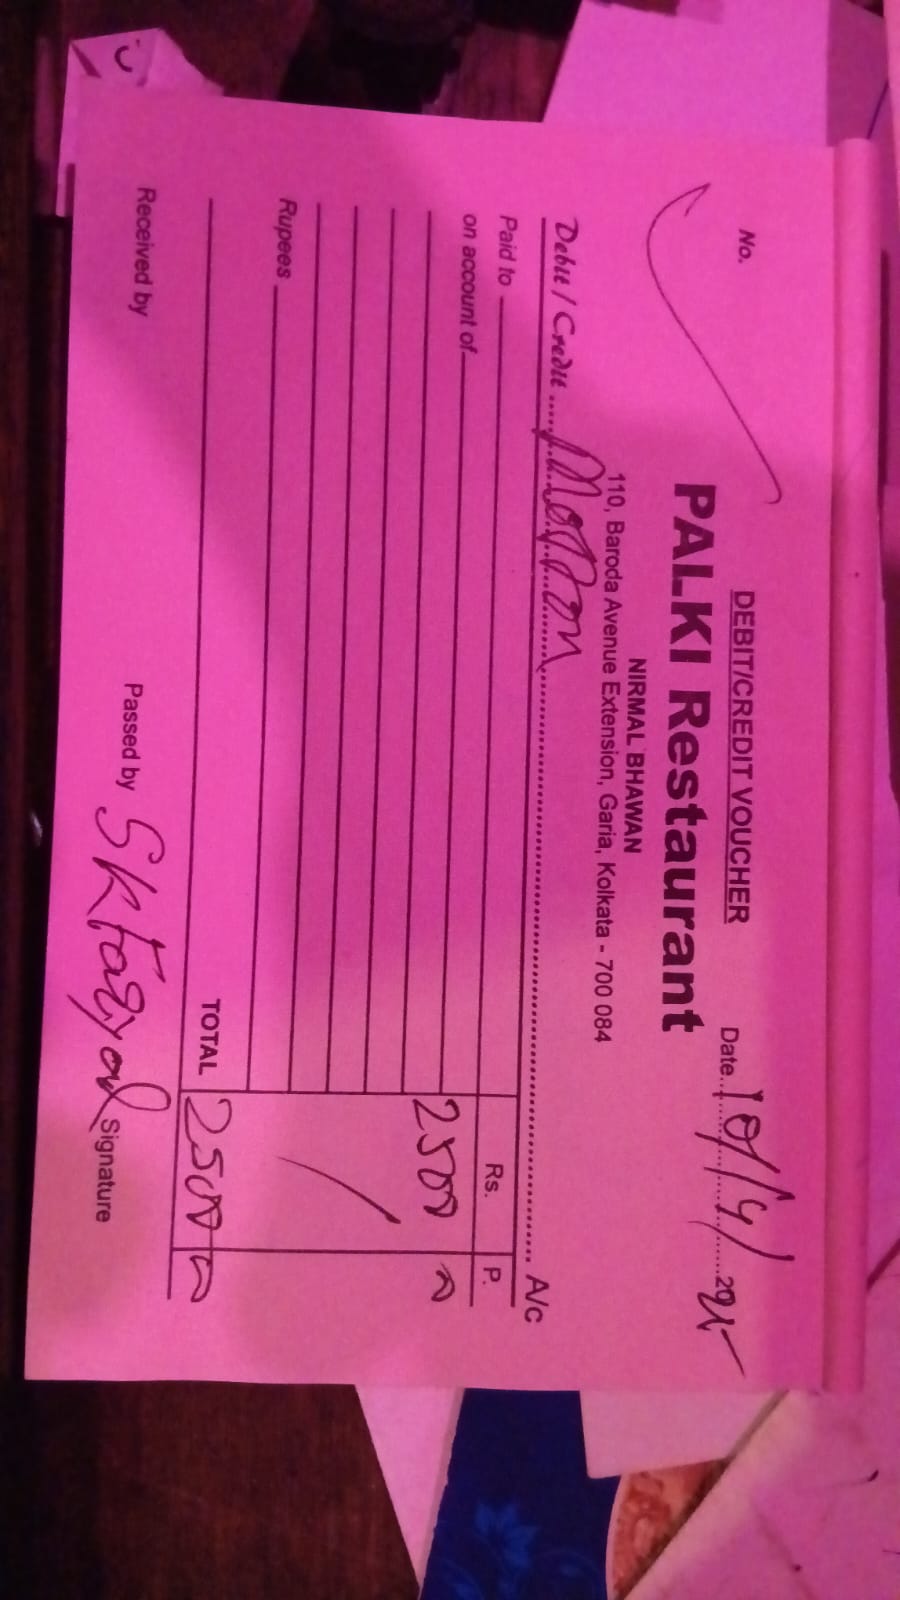 DEBIT/CREDIT VOUCHER
No.
Date 10/4/2025
PALKI Restaurant
NIRMAL BHAWAN
110, Baroda Avenue Extension, Garia, Kolkata - 700 084
Debit / Credit ..... Motton ..... A/c
Paid to
Rs. P.
on account of
2500 00
Rupees
TOTAL 2500 00
Received by
Passed by
Signature